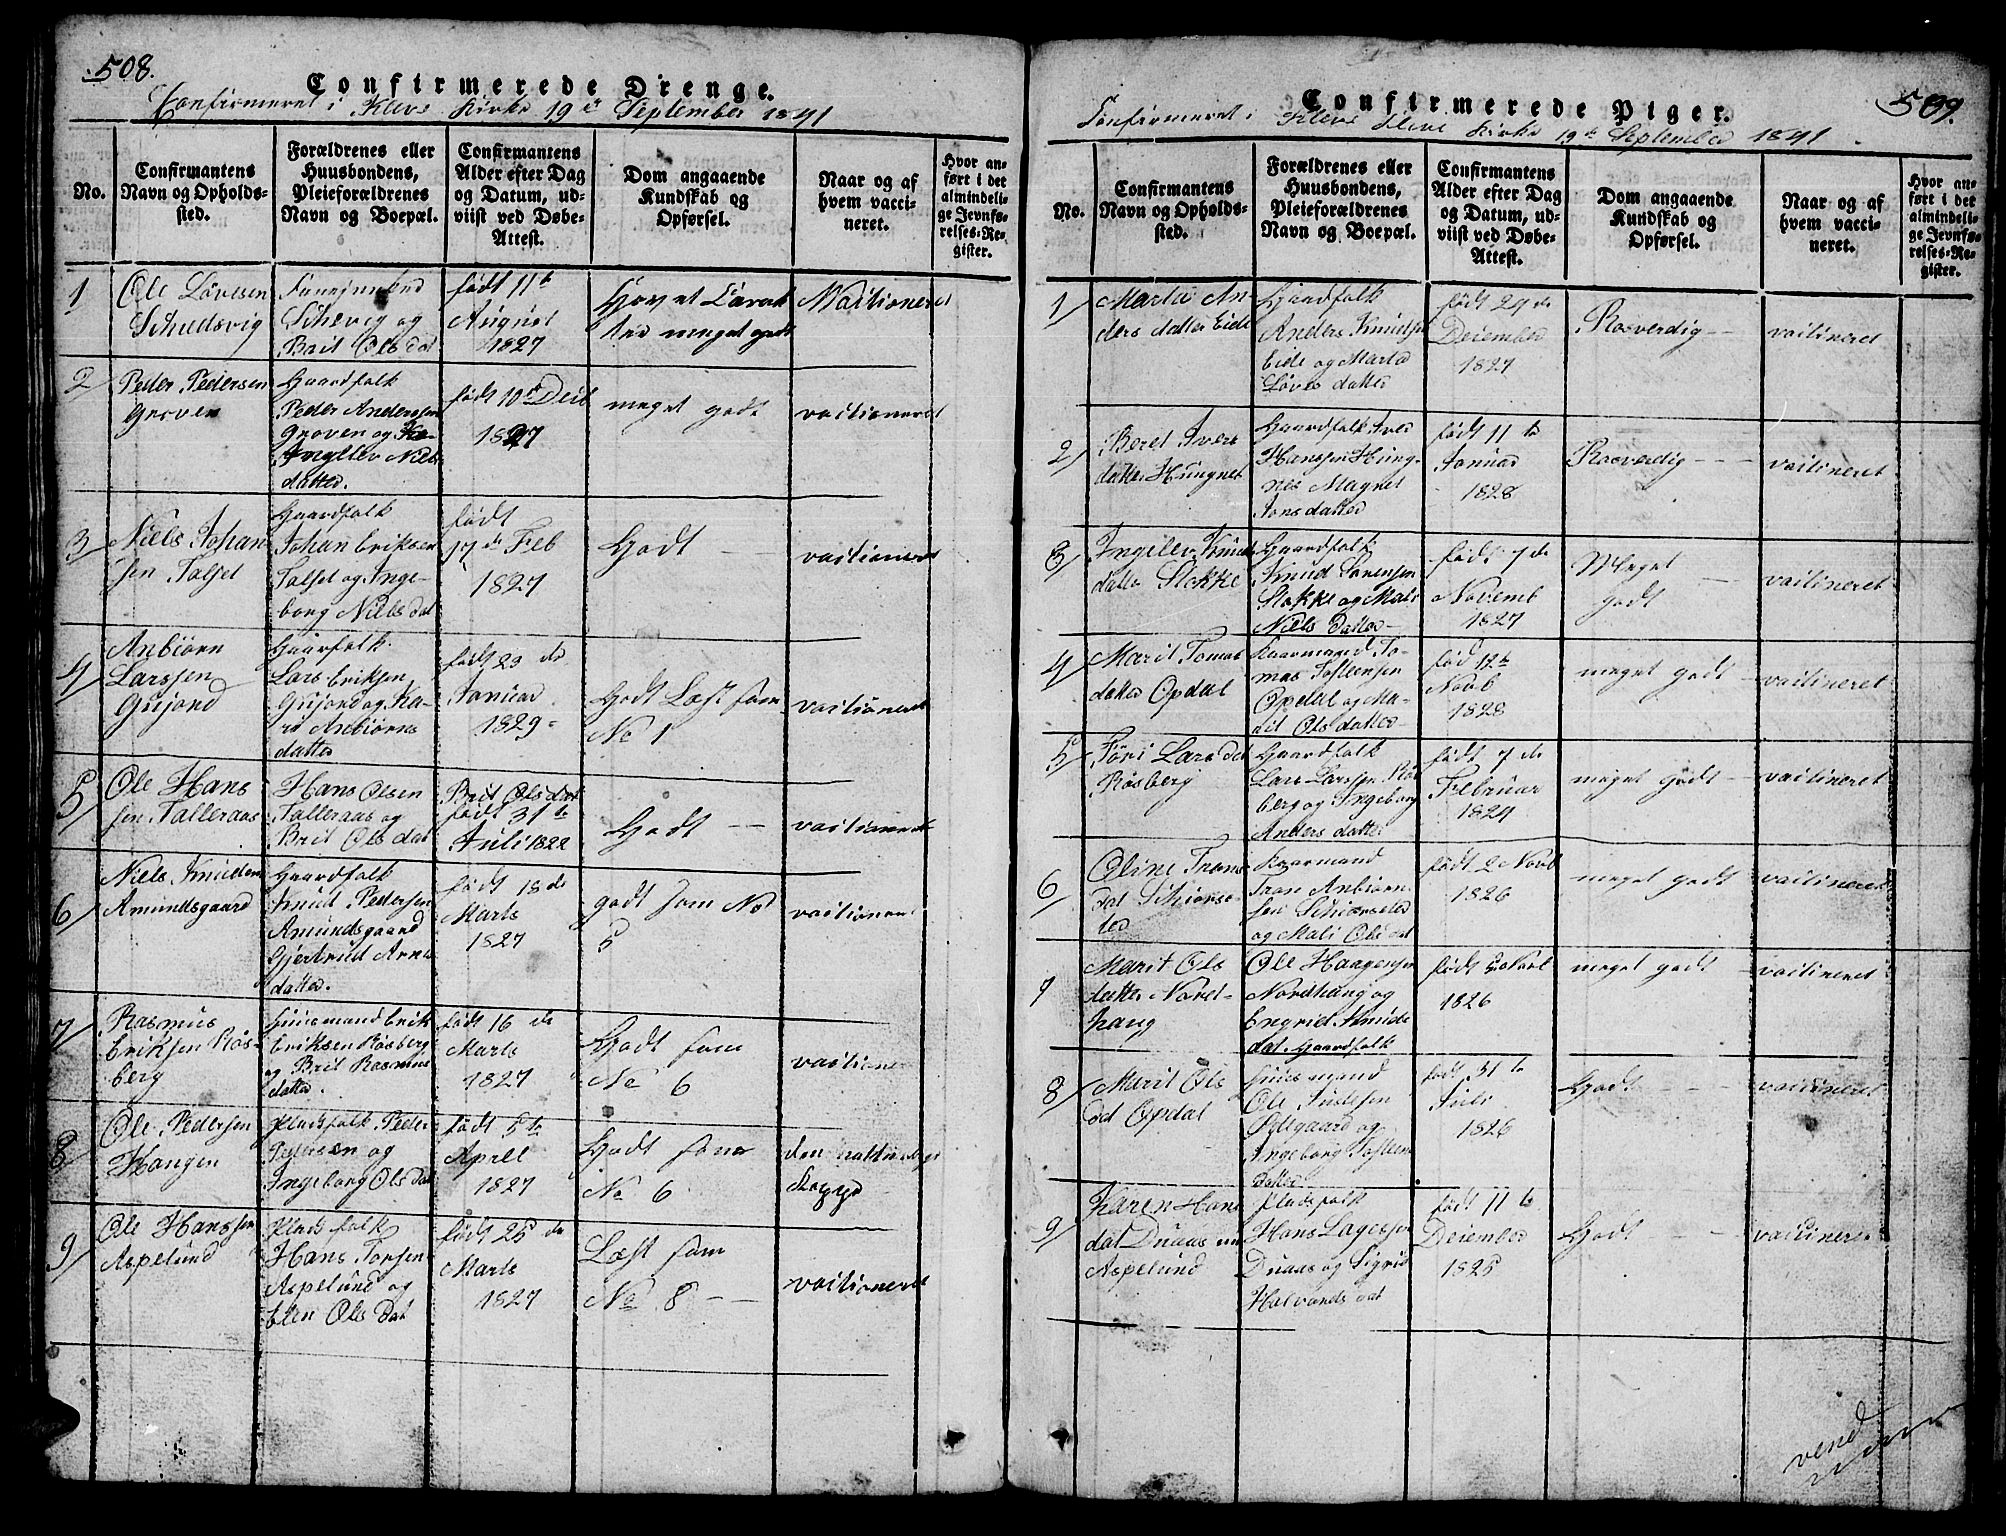 508.
Confirmerede Drenge.
Confirmeret i Kleve Kirke 19de September 1841
No.
Confirmantens
Navn og Opholds-
sted.
Forældrenes eller
Huusbondens,
Pleieforældrenes
Navn og Boepæl.
Confirmantens
Alder efter Dag
og Datum, ud-
viist ved Døbe-
Attest.
Dom angaaende
Kundskab og
Opførsel.
Naar og af
hvem vacci-
neret.
Hvor an-
ført i det
almindeli-
ge Jevnfø-
relses-Re-
gister.
1
Ole Lövesen
født 11te
August
1827
meget godt
2
Peder Pedersen
Groven
Gaardfolk
Peder Anderssen
Groven og
Ingelev Niels
datter.
født 10de
1827
meget godt
vacsioneret
3
Niels Johan
sen Talset
Gaardfolk
Johan Eriksen
Talset og Inge-
borg Niels dat
født
17de Feb
1827
Godt
vacsioneret
4
Anbiörn
Larssen
Gujord
Gaarfolk
Lars Eriksen
Gujord og Ka-
ri Anbiörns
datter
født 23 de
Januar
1829
Godt Læst som
No 1
vacsioneret
5
Ole Hans
sen Talleraas
Hans Olsen
Talleraas og
Brit Ols dat
Brit Ols dat
født 31te
Juli 1828
Godt
vacsioneret
6
Niels Knudsen
Amundsgaard
Gaardfolk
Knud Pedersen
Amundsgaard
Gjertrud Arne
datter.
født 18 de
Marts
1827
godt som No
5
vacsioneret
7
Rasmus
Eriksen Rös-
berg
Huusmand Erik
Eriksen Rösberg
og Brit Rasmus
datter.
født 16 de
Marts
1827
Godt som
No 6
vacsioneret
8
Ole Pedersen
Haugen
Pladsfolk Peder
Pedersen og
Ingeborg Ols dat
født 5te
April
1827
Godt som
No 6
9
Ole Hanssen
Aspelund
Plads folk
Hans Torsen
Aspelund og
Elen Ols dat
født 25 de
Marts
1827
Læst som
No 8
vacsioneret
509.
Confirmerede Piger.
Confirmeret i Kleve Kleve Kirke 19de September 1841
No.
Confirmantens
Navn og Opholds-
sted.
Forældrenes eller
Huusbondens,
Pleieforældrenes
Navn og Boepæl.
Confirmantens
Alder efter Dag
og Datum, ud-
viist ved Døbe-
Attest.
Dom angaaende
Kundskab og
Opførsel.
Naar og af
hvem vacci-
neret.
Hvor an-
ført i det
almindeli-
ge Jevnfø-
relses-Re-
gister.
1
Marta An-
ders datter Eide
Gaardfolk
Anders Knudsen
Eide og Marta
Löves datter
født 24 de
December
1827
Rosverdig
vacsineret
2
Beret Ivers
datter Hungnes
Gaardfolk Iver
Hanssen Hung-
nes Magnel
Jons datter
født 11te
Januar
1828
Rosverdig
vacsineret
3
Ingelev Knud
datter Stokke
Gaardfolk
Knud Sørensen
Stokke og Mali
Niels datter
født 7 de
Novemb
1827
Meget
godt
vacsineret
4
Marit Tomas
datter Opdal
Kaarmand To-
mas Tostensen
Opdal og Ma-
rit Ols datter
fød 12te
Novb
1828
meget godt
vacsineret
5
Göri Lars dat
Rösberg
Gaardfolk
Lars Larssen Rös
berg og Ingeborg
Anders datter
født 7 de
Februar
1824
meget godt
vacsineret
6
Oline Trons
dat Schiörse-
ter
Kaarmand
Tron Anbiörn
sen Schiörseter
og Mali Ols dat
født 2 Novb
1826
meget godt
vacsineret
7
Marit Ols
datter Nord-
haug
Ole Haagensen
Nordhaug og
Engrid Knuds
dat. Gaardfolk
1826
meget godt
vacsineret
8
Marit Ols
dat Opdal
Huusmand
Ole
Ingeborg Tosten
datter
født 31te
Juli
1826
Godt
vacsineret
9
Karen Hans
dat Duaas
Aspelund
Pladsfolk
Hans Lagesen
Duaas og Sigrid
Halvards dat
født 11te
December
1825
Godt
vacsineret
vend